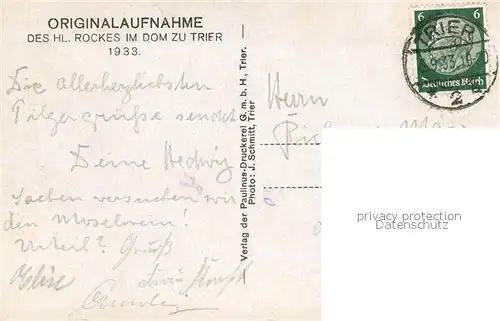 ORIGINALAUFNAHME
DES HL. ROCKES IM DOM ZU TRIER
1933.
Die allerherzlichsten
Pilgergrüße sendet
Deine Hedwig
Soeben versuchen wir
den Moselwein!
Urteil? Gruß
Elise Frau
Verlag der Paulinus-Druckerei G. m. b. H., Trier.
Photo: J. Schmitt, Trier
Herrn
6 6
Deutsches Reich
TRIER
2
privacy protection
Datenschutz